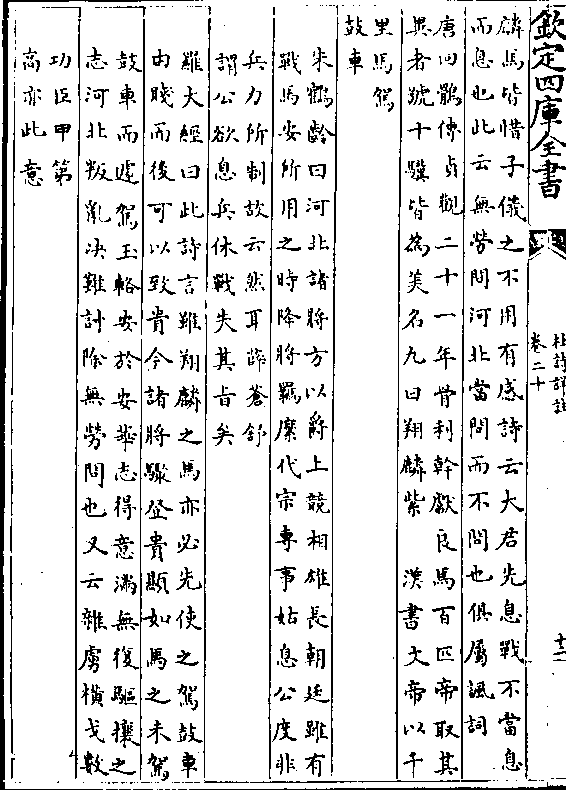 欽定四庫全書
杜詩詳註
卷二十
十二
麟馬皆惜子儀之不用有感詩云大君先息戰不當息
而息也此云無勞問河北當問而不問也俱屬諷詞
唐回鶻傳貞觀二十一年骨利幹獻良馬百匹帝取其
異者號十驥皆為美名九曰翔麟紫　漢書文帝以千
里馬駕
鼓車
朱鶴齡曰河北諸將方以爵上競相雄長朝廷雖有
戰馬安所用之時降將羈縻代宗專事姑息公度非
兵力所制故云然耳薛蒼舒
謂公欲息兵休戰失其旨矣
羅大經曰此詩言雖翔麟之馬亦必先使之駕鼓車
由賤而後可以致貴今諸將驟登貴顯如馬之未駕
鼓車而遽駕玉輅安於安華志得意滿無復驅攘之
志河北叛亂决難討除無勞問也又云雜虜橫戈數
功臣甲第
高亦此意